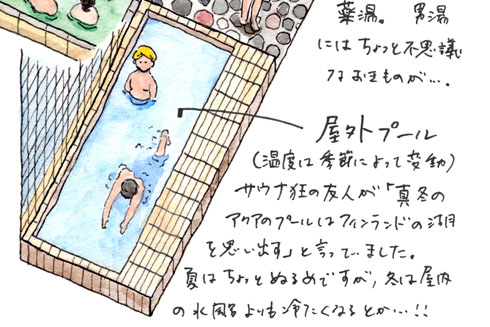 薬湯。 男湯
にはちょっと不思議
なおきものが…。
屋外プール
(温度は季節によって変動)
サウナ狂の友人が「真冬の
アクアのプールはフィンランドの湖
を思い出す」と言っていました。
夏はちょっとぬるめですが、冬は屋内
の水風呂よりも冷たくなるとか…!!